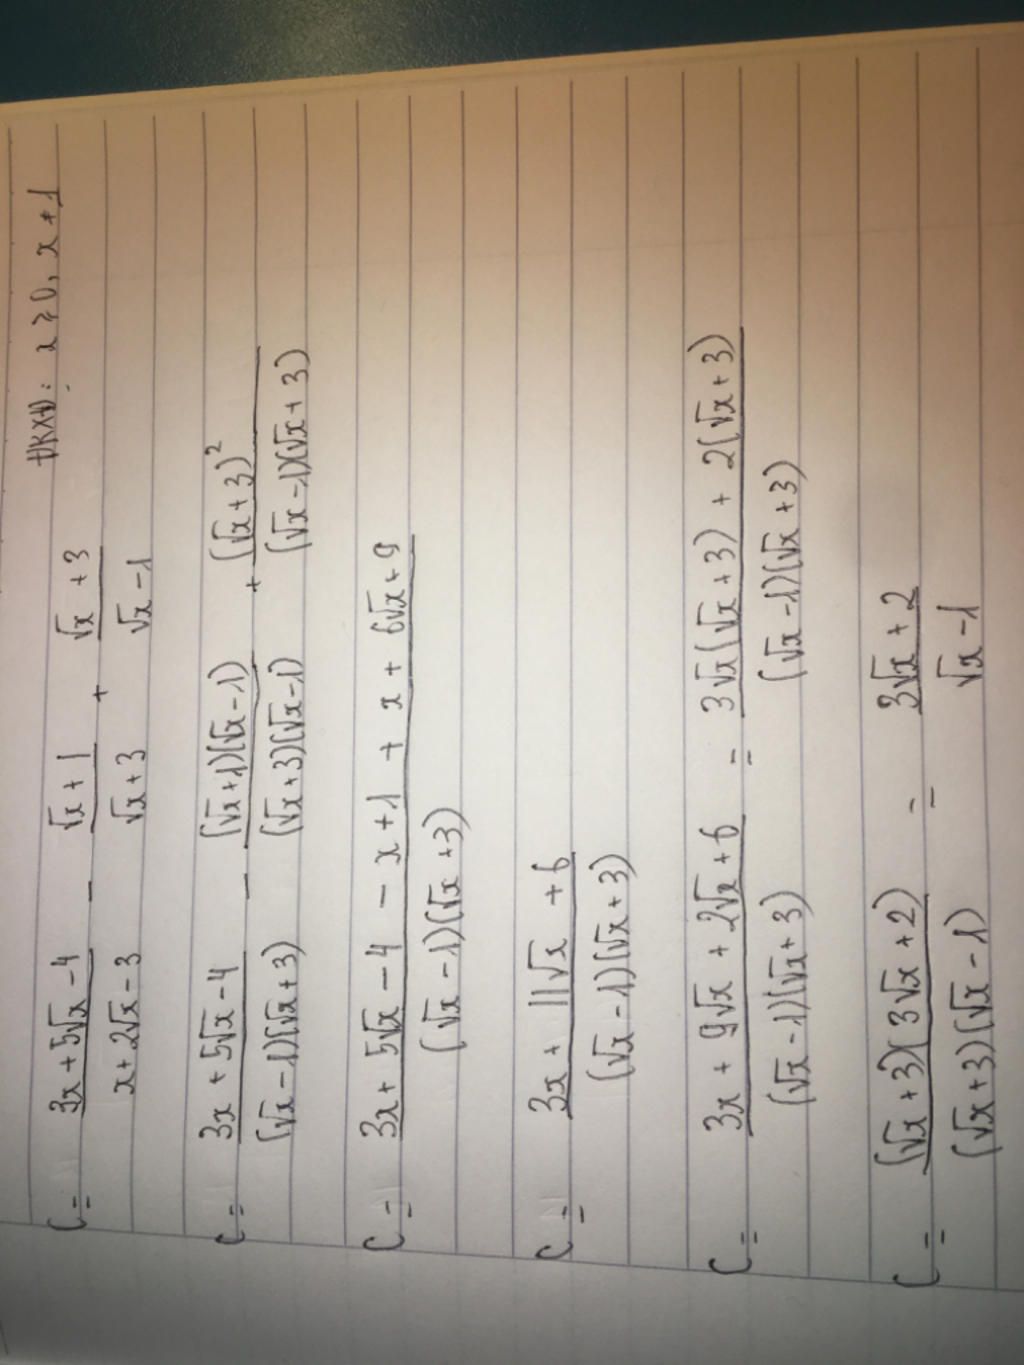 ĐKXĐ: x ≥ 0, x ≠ 1
C = (3x + 5√x - 4)/(x + 2√x - 3) - (√x + 1)/(√x + 3) + (√x + 3)/(√x - 1)
C = (3x + 5√x - 4)/((√x - 1)(√x + 3)) - ((√x + 1)(√x - 1))/((√x + 3)(√x - 1)) + (√x + 3)²/((√x - 1)(√x + 3))
C = (3x + 5√x - 4 - x + 1 + x + 6√x + 9)/((√x - 1)(√x + 3))
C = (3x + 11√x + 6)/((√x - 1)(√x + 3))
C = (3x + 9√x + 2√x + 6)/((√x - 1)(√x + 3)) = (3√x(√x + 3) + 2(√x + 3))/((√x - 1)(√x + 3))
C = ((√x + 3)(3√x + 2))/((√x + 3)(√x - 1)) = (3√x + 2)/(√x - 1)